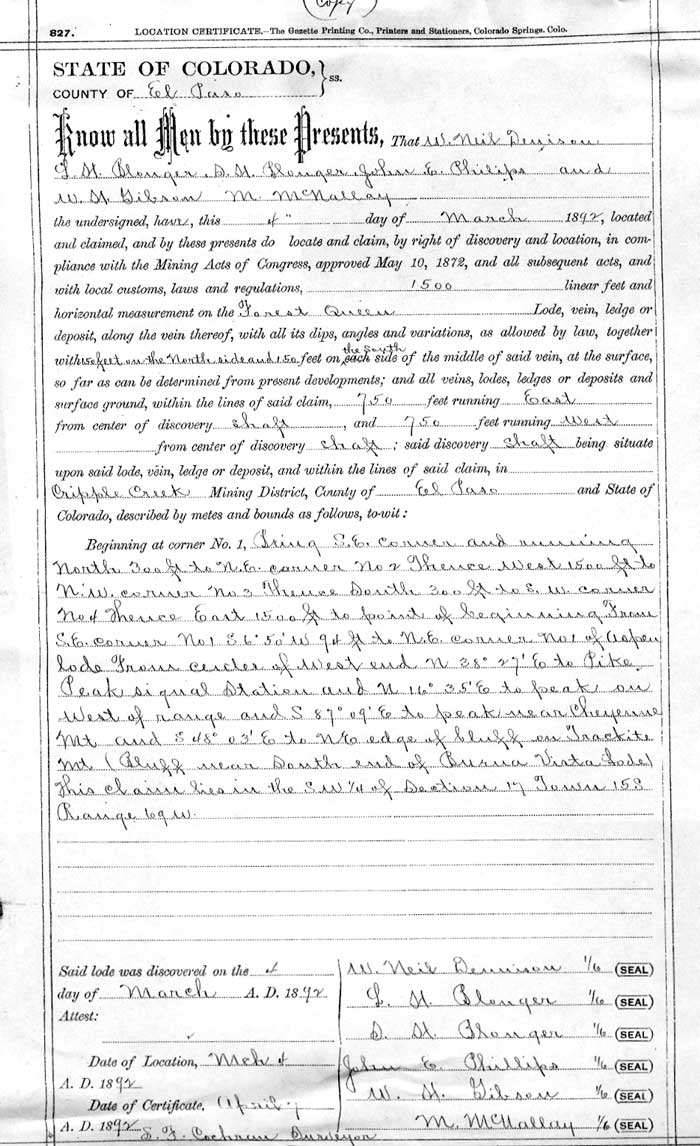 (Copy)
827. LOCATION CERTIFICATE.—The Gazette Printing Co., Printers and Stationers, Colorado Springs. Colo.
STATE OF COLORADO, } ss.
COUNTY OF El Paso
Know all Men by these Presents, That W. Neil Dennison
L. H. Blonger. S. H. Blonger John E. Philips and
W. H. Gibson M. McNallay
the undersigned, have, this 4" day of March 1892, located
and claimed, and by these presents do locate and claim, by right of discovery and location, in com-
pliance with the Mining Acts of Congress, approved May 10, 1872, and all subsequent acts, and
with local customs, laws and regulations, 1500 linear feet and
horizontal measurement on the Forest Queen Lode, vein, ledge or
deposit, along the vein thereof, with all its dips, angles and variations, as allowed by law, together
with 150 feet on the North side and 150 feet on the South each side of the middle of said vein, at the surface,
so far as can be determined from present developments; and all veins, lodes, ledges or deposits and
surface ground, within the lines of said claim, 750 feet running East
from center of discovery shaft, and 750 feet running West
from center of discovery shaft; said discovery shaft being situate
upon said lode, vein, ledge or deposit, and within the lines of said claim, in
Cripple Creek Mining District, County of El Paso and State of
Colorado, described by metes and bounds as follows, to-wit:
Beginning at corner No. 1, Being S.E. corner and running
North 300 ft to N.E. corner No 2 Thence West 1500 ft to
N.W. corner No 3 Thence South 300 ft to S. W. corner
No 4 Thence East 1500 ft to point of beginning. From
S.E. corner No 1 S 6° 50' W 94 ft to N.E. corner No 1 of Aspen
lode From center of West end N 38° 27' E to Pike
Peak signal Station and N 16° 35' E to peak on
West of range and S 87° 09' E to peak near Cheyenne
Mt and S 48° 03' E to N E edge of bluff on Trackite
Mt (Bluff near South end of Buena Vista Lode)
This claim lies in the S W 1/4 of Section 17 Town 15 S
Range 69 W.
Said lode was discovered on the 4
day of March A. D. 1892
Attest:
Date of Location, Mch 4
A. D. 1892
Date of Certificate, April 7
A. D. 1892
L. F. Cochran Surveyor
W. Neil Dennison 1/6 (SEAL)
L. H. Blonger 1/6 (SEAL)
S. H. Blonger 1/6 (SEAL)
John E. Phillips 1/6 (SEAL)
W. H. Gibson 1/6 (SEAL)
M. McNallay 1/6 (SEAL)